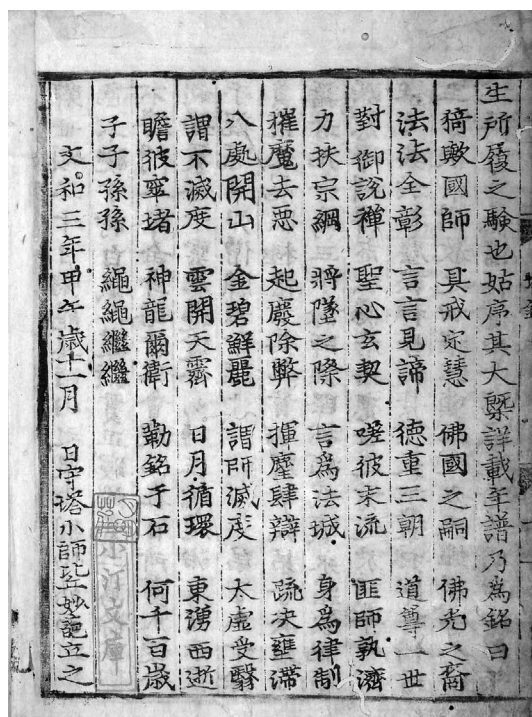 生所履之驗也姑序其大槩詳載年譜乃為銘曰
猗歟國師 具戒定慧 佛國之嗣 佛光之裔
法法全彰 言言見諦 德重三朝 道尊一世
對御說禅 聖心玄契 嗟彼末流 匪師孰濟
力扶宗綱 將墜之際 言為法城 身為律制
摧魔去惡 起廢除弊 揮麈肆辯 疏决壅滯
八處開山 金碧鮮麗 謂所滅度 太虛受翳
謂不滅度 雲開天霽 日月循環 東湧西逝
瞻彼窣堵 神龍爾衛 勒銘于石 何千百歲
子子孫孫 繩繩繼繼
文和三年甲午歲十一月 日守塔小師 妙葩立之
小汀文庫